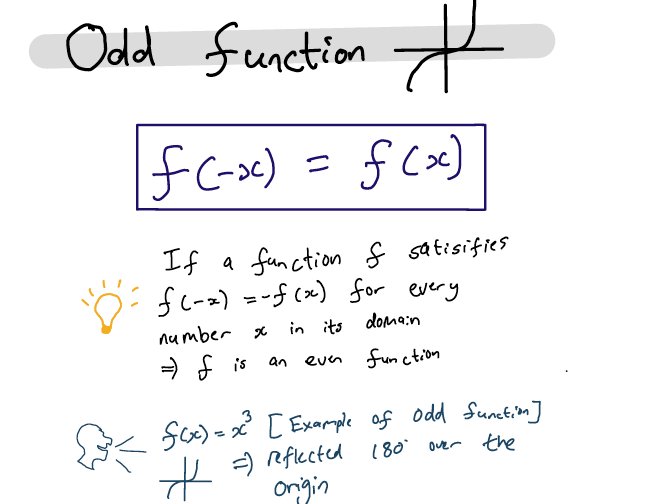 Odd function
f(-x) = f(x)
If a function f satisifies
f(-x) = -f(x) for every
number x in its domain
⇒ f is an even function
f(x) = x³ [Example of odd function]
⇒ reflected 180° over the
origin